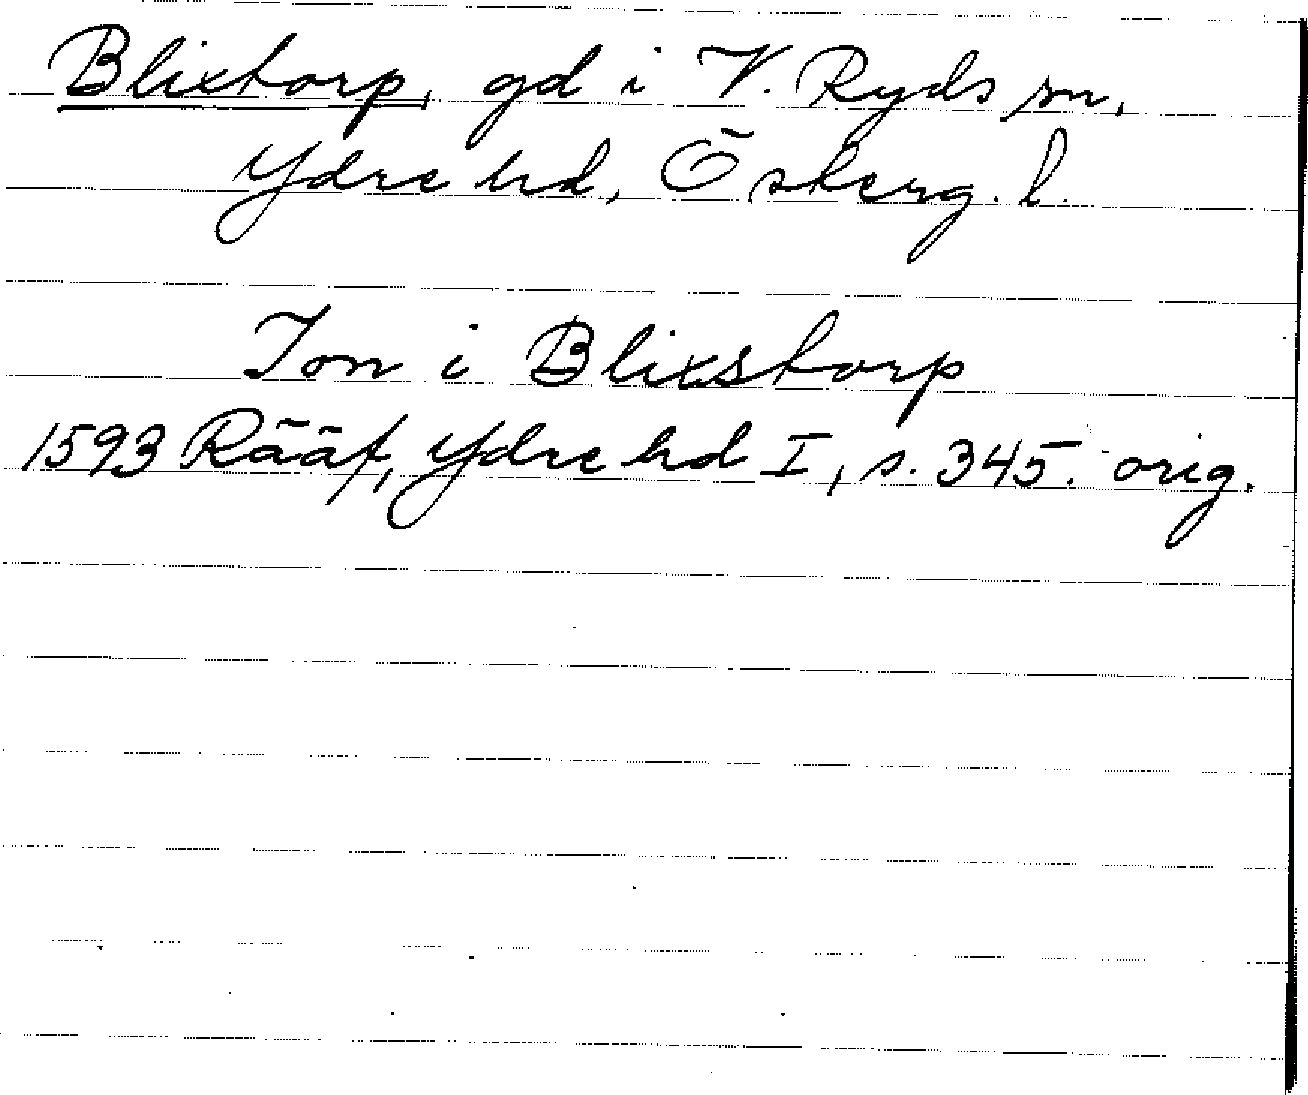 Blixtorp, gd i V. Ryds sn,
Ydre hd, Österg. l.
Jon i Blixstorp
1593 Rääf, Ydre hd I, s. 345. orig.